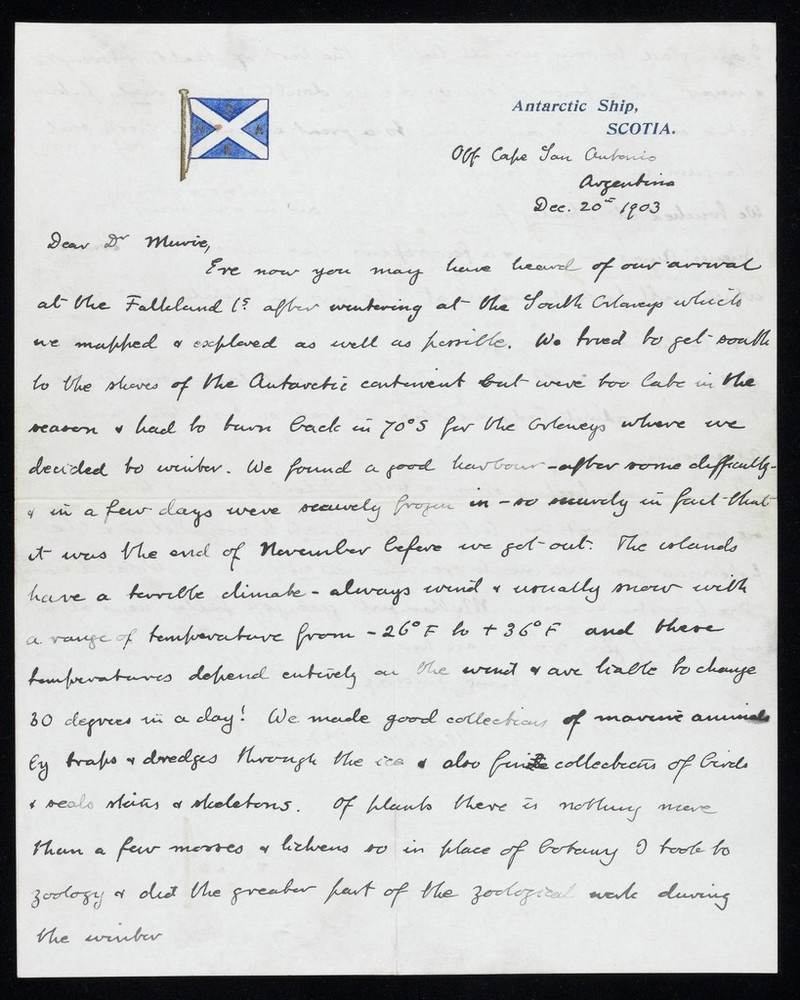 S
N A
E
Antarctic Ship,
SCOTIA.
Off Cape San Antonio
Argentina
Dec. 20th 1903
Dear Dr Murie,
Ere now you may have heard of our arrival
at the Falkland Is after wintering at the South Orkneys which
we mapped & explored as well as possible. We tried to get south
to the shores of the Antarctic continent but were too late in the
season & had to turn back in 70°S for the Orkneys where we
decided to winter. We found a good harbour - after some difficulty -
& in a few days were securely frozen in - so securely in fact that
it was the end of November before we got out. The islands
have a terrible climate - always wind & usually snow with
a range of temperature from - 26°F to + 36°F and these
temperatures depend entirely on the wind & are liable to change
30 degrees in a day! We made good collections of marine animals
by traps & dredges through the ice & also fine collections of birds
& seals skins & skeletons. Of plants there is nothing more
than a few mosses & lichens so in place of botany I took to
zoology & did the greater part of the zoological work during
the winter